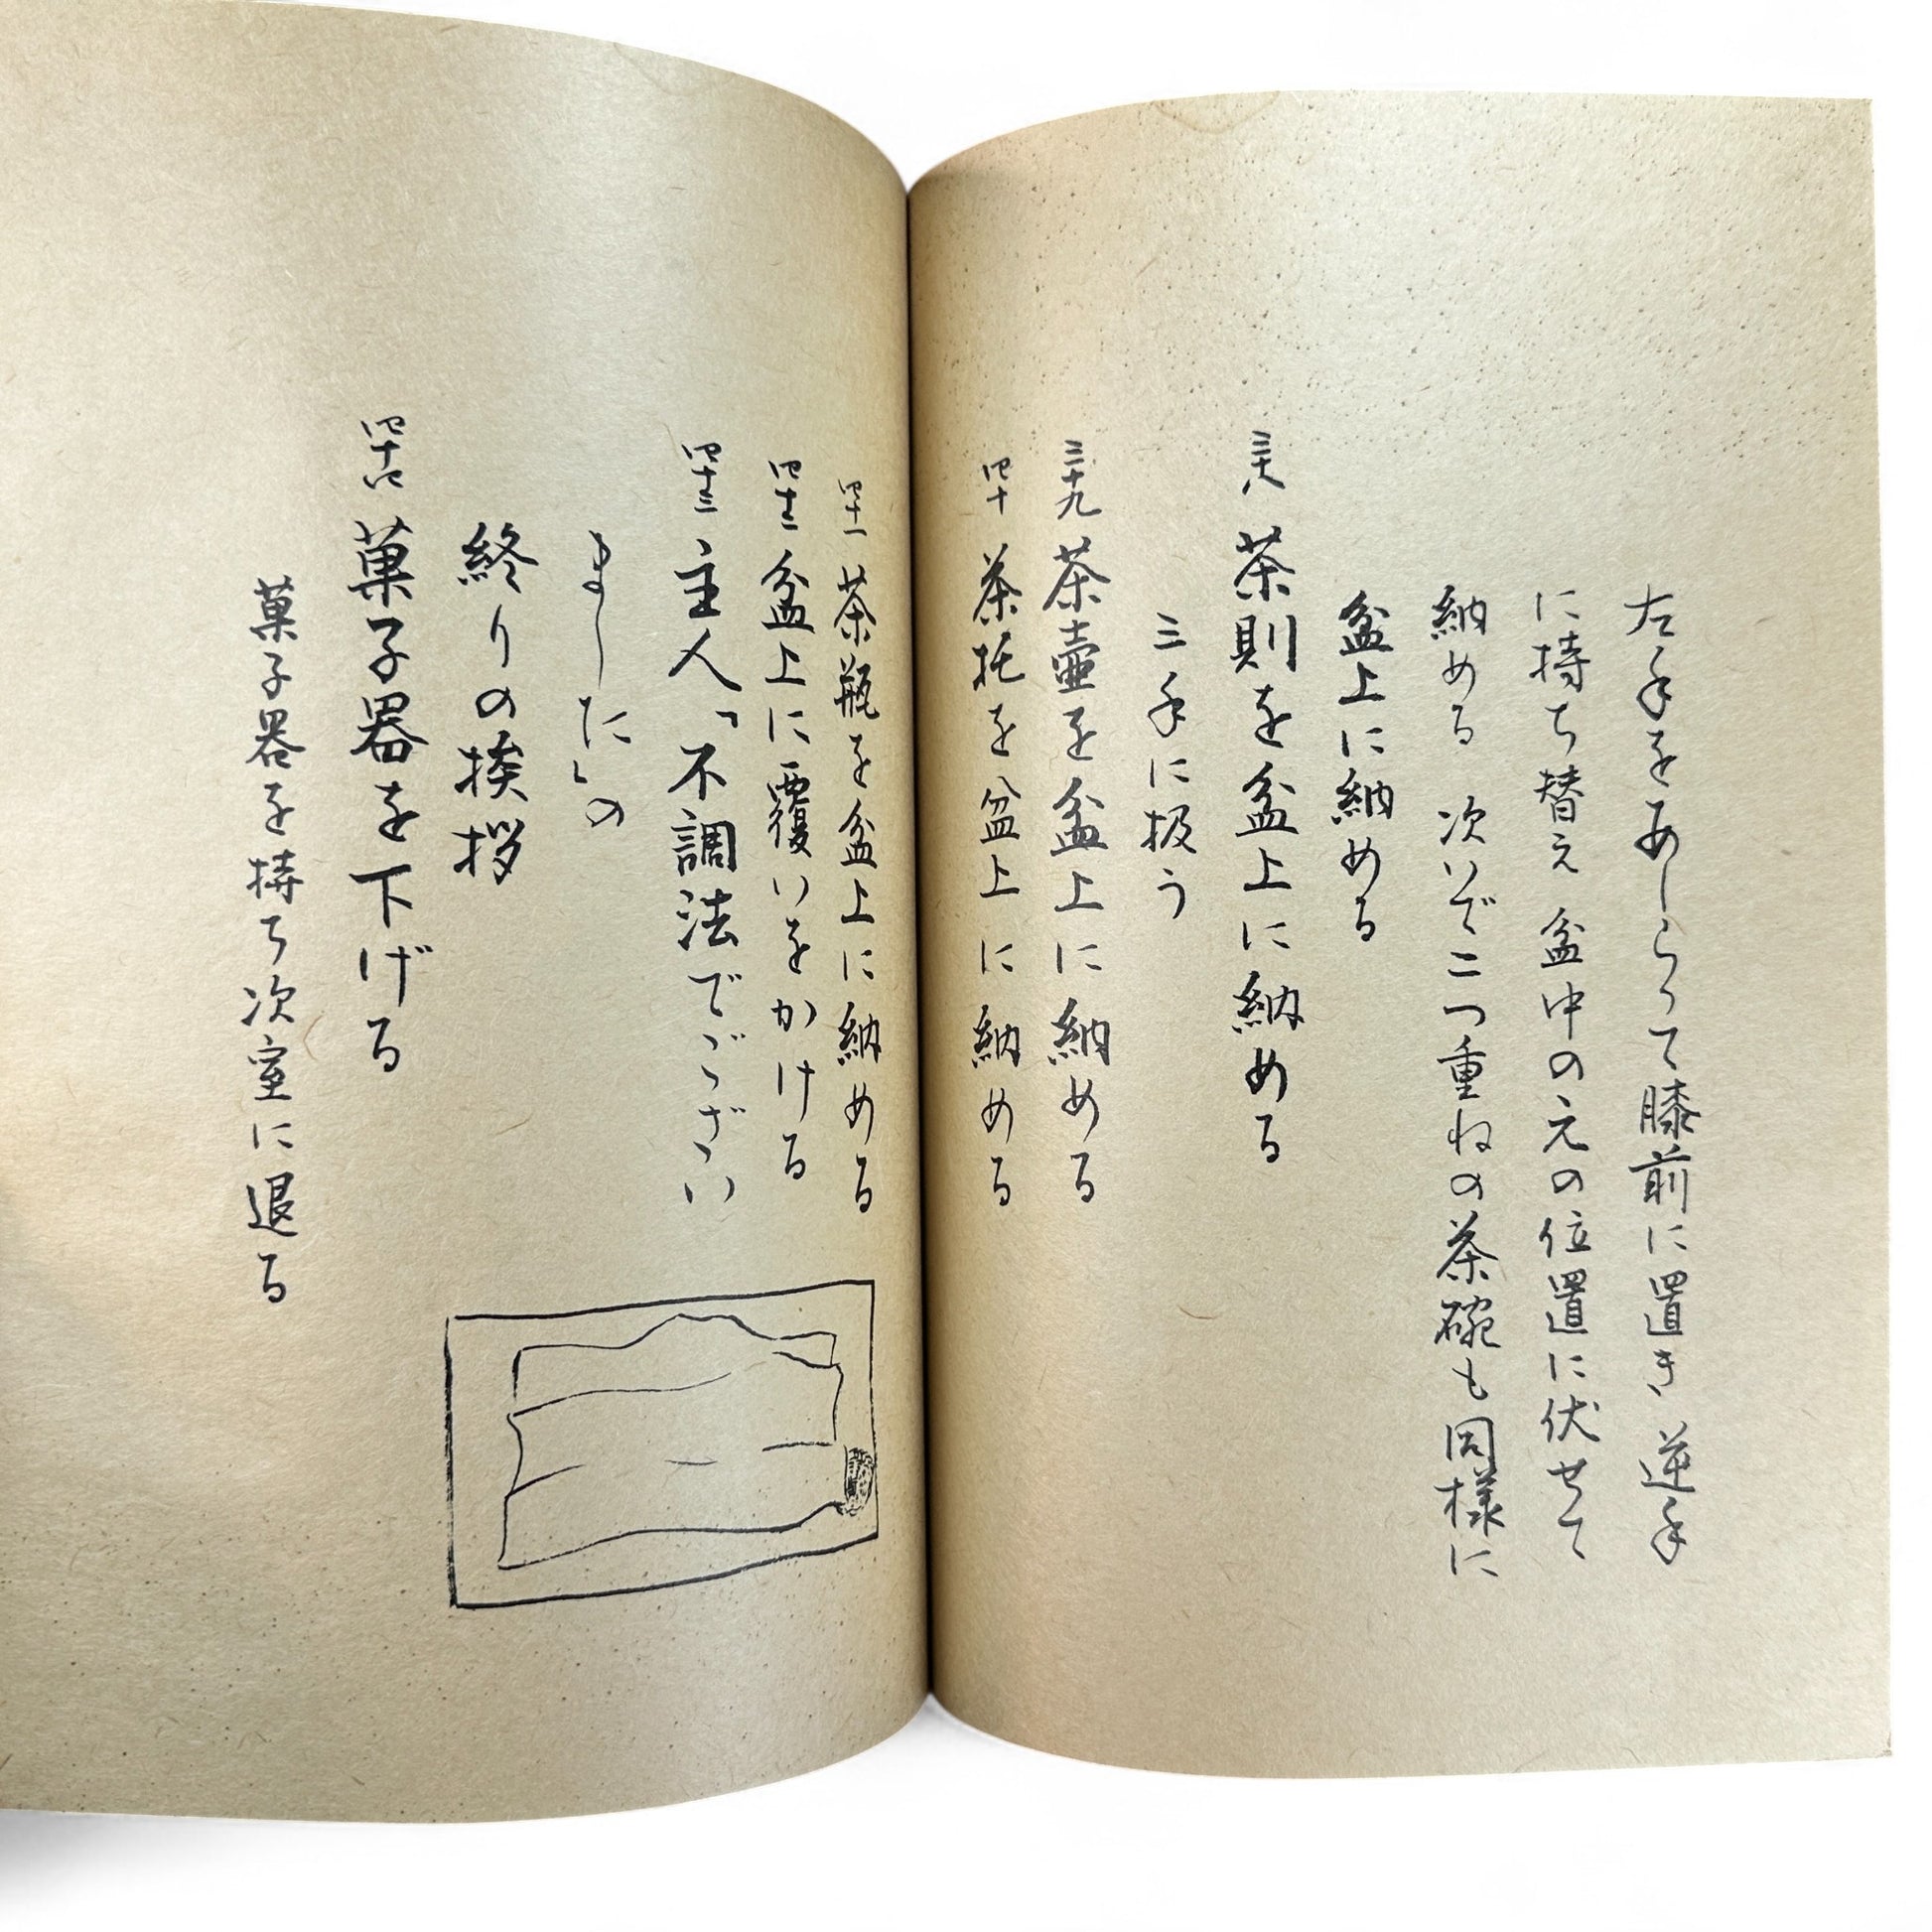 左手をあしらって膝前に置き逆手
に持ち替え盆中の元の位置に伏せて
納める 次いで二つ重ねの茶碗も同様に
盆上に納める
三十八 茶則を盆上に納める
三手に扱う
三十九 茶壷を盆上に納める
四十 茶托を盆上に納める
四十一 茶瓶を盆上に納める
四十二 盆上に覆いをかける
四十三 主人「不調法でございい
ました」の
終りの挨拶
四十四 菓子器を下げる
菓子器を持ち次室に退る